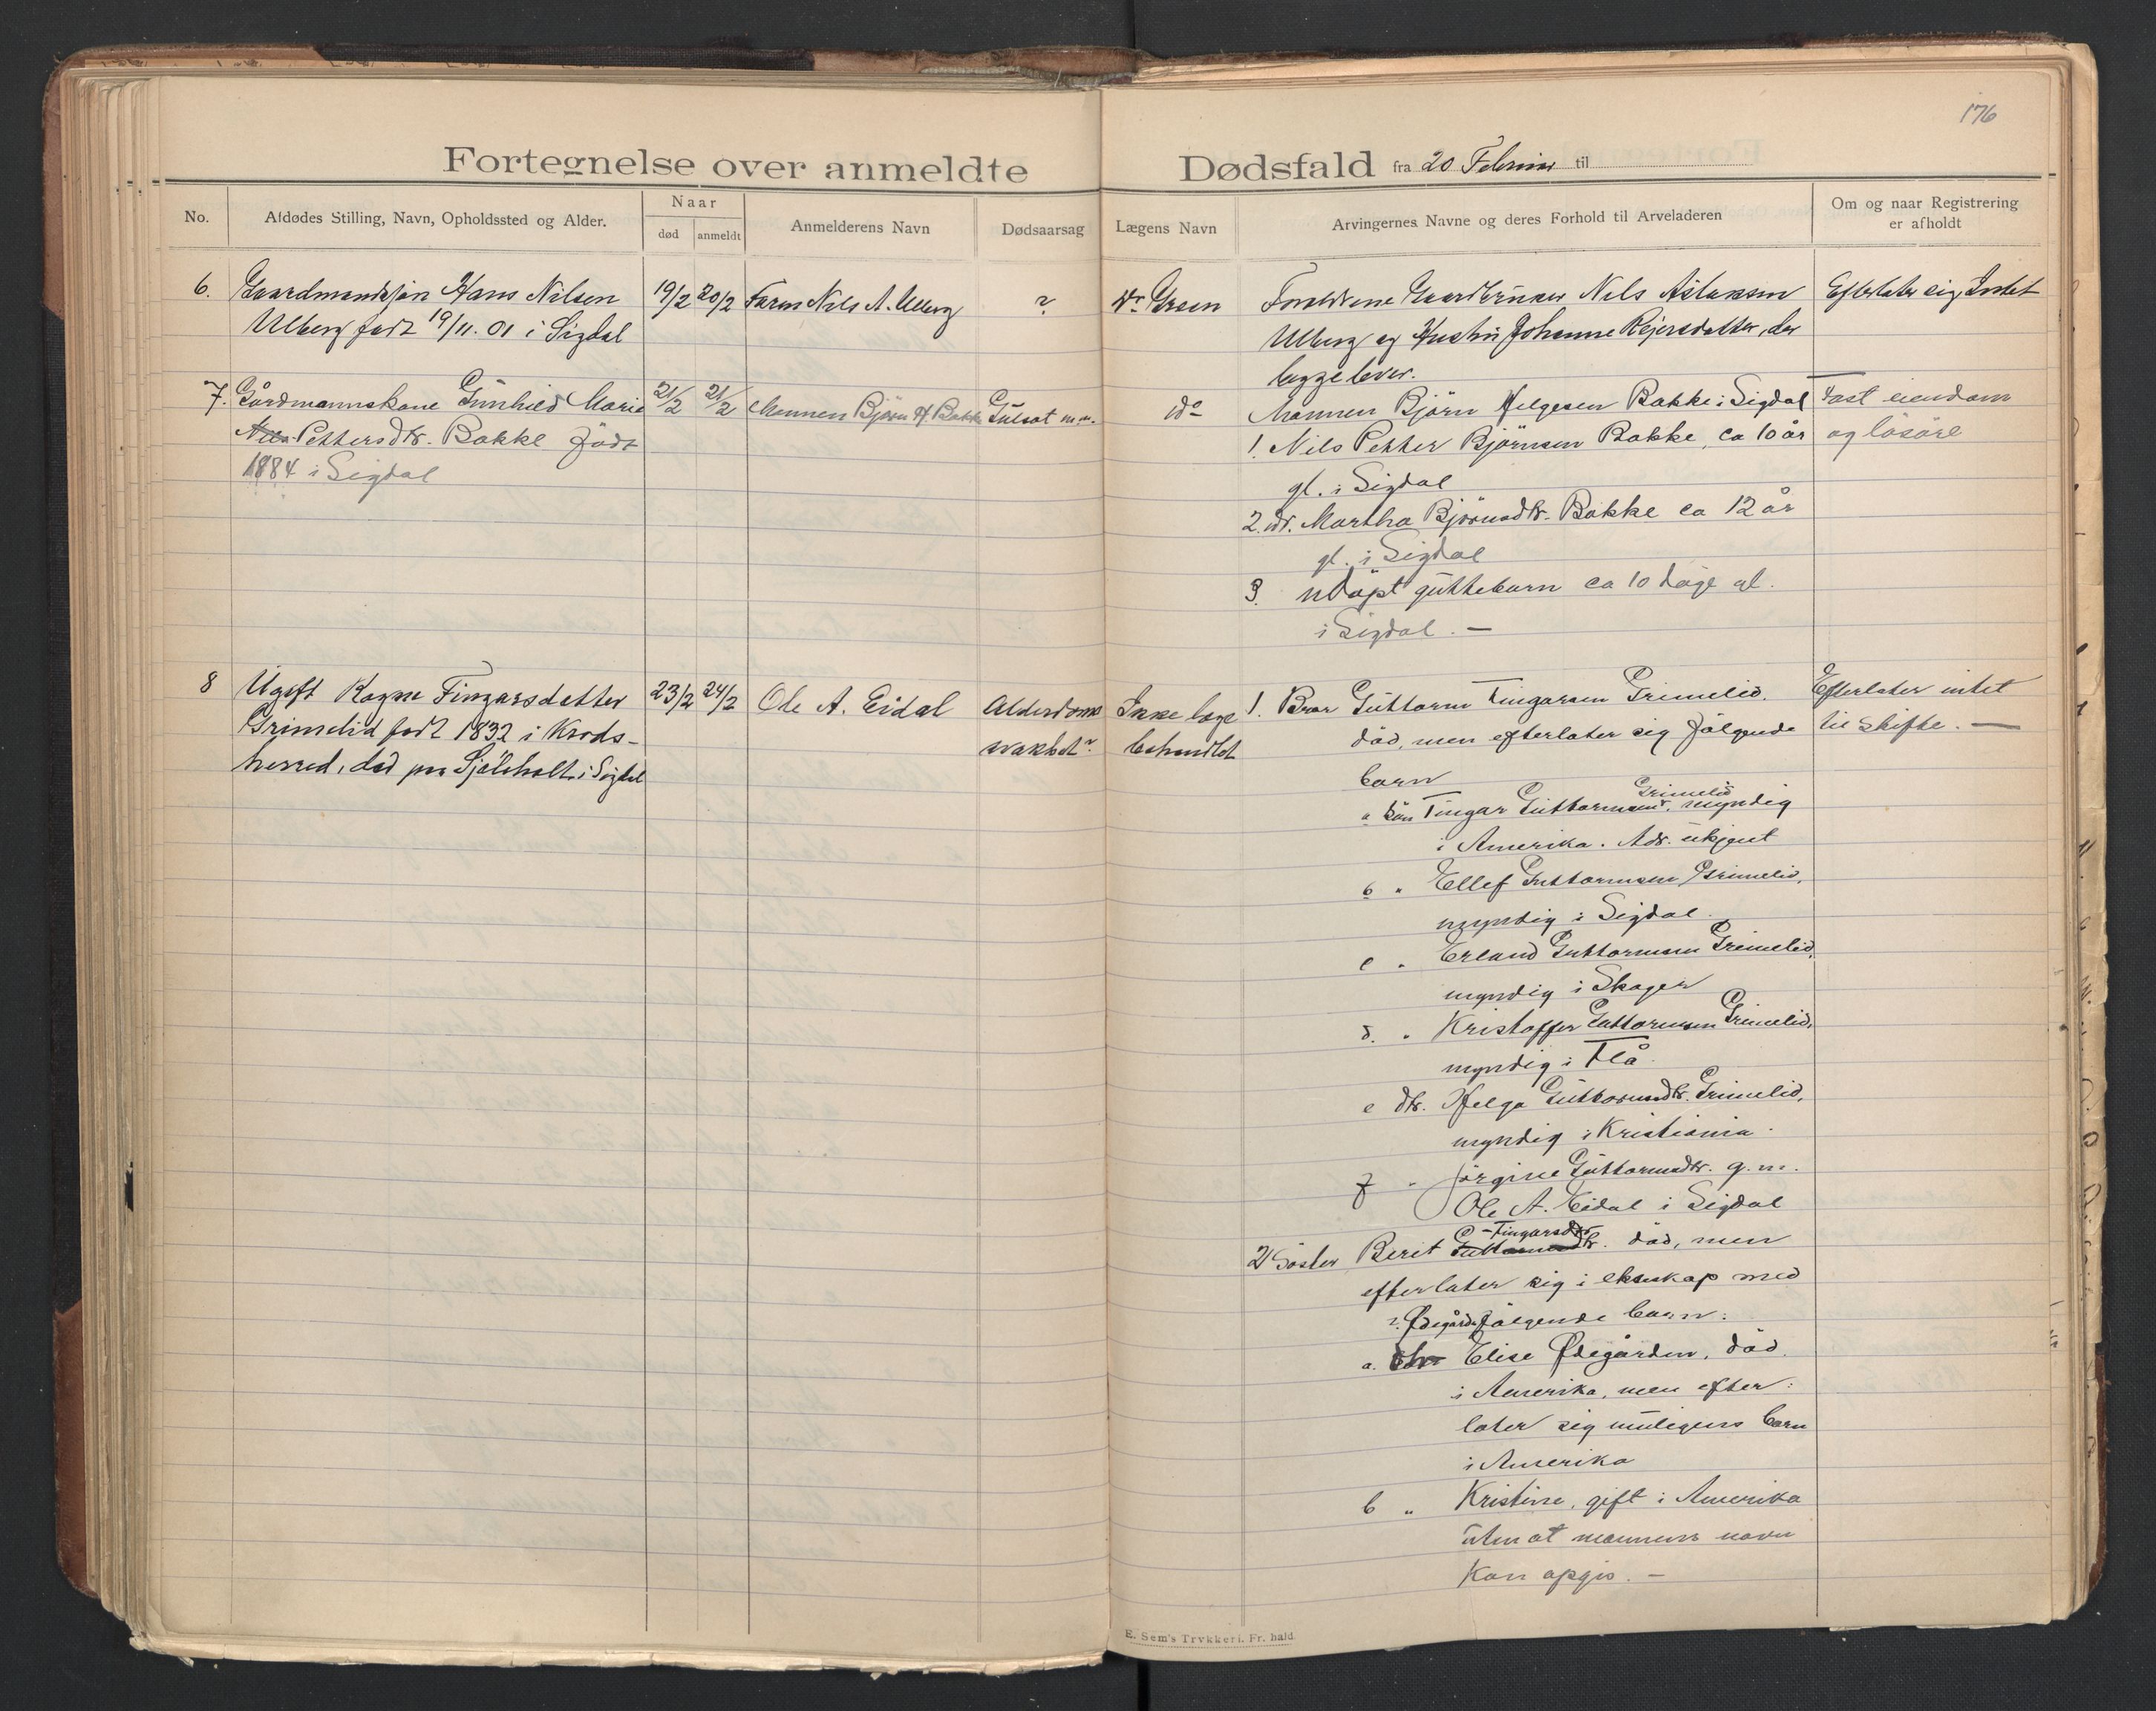 176
Fortegnelse over anmeldte Dødsfald fra 20 Februar til
No.
Afdødes Stilling, Navn, Opholdssted og Alder.
Naar
død
anmeldt
Anmelderens Navn
Dødsaarsag
Lægens Navn
Arvingernes Navne og deres Forhold til Arveladeren
Om og naar Registrering
er afholdt
6. Gaardmandssøn Hans Nilsen
Ulberg født 19/11. 01 i Sigdal
19/2 20/2 Faren Nils A. Ulberg ? Dr Green
Forældrene Gaardbruker Nils Aslaksen
Ulberg og Hustru Johanne Reiersdatter, der
begge lever.
Efterlater sig Intet
7. Gårdmannskone Gunhild Marie
Nils Pettersdtr. Bakke født
1884 i Sigdal
21/2 21/2 Mannen Björn H. Bakke Gulsot m.m. do
Mannen Björn Helgesen Bakke i Sigdal
1. Nils Petter Björnsen Bakke, ca 10 år
gl. i Sigdal
2. dtr. Martha Björnsdtr. Bakke ca 12 år
gl. i Sigdal
3. udöpt guttebarn ca 10 dage gl.
i Sigdal. —
Fast eiendom
og lösöre
8 Ugift Ragne Fingarsdatter
Grimelid født 1832 i Krøds-
herred, død paa Sjølsholt i Sigdal
23/2 24/2 Ole A. Eidal Alderdoms
svakhet? Ikke læge
behandlet
1. Bror Guttorm Fingarsen Grimelid.
död, men efterlater sig fölgende
barn
a sön Fingar Guttormsen Grimelid, myndig
i Amerika. Adr. ukjent
b " Ellef Guttormsen Grimelid,
myndig i Sigdal.
c " Erland Guttormsen Grimelid,
myndig i Skoger
d. " Kristoffer Guttormsen Grimelid,
myndig i Flå.
e dtr. Helga Guttormsdtr. Grimelid,
myndig i Kristiania.
f " Jörgine Guttormsdtr. g. m.
Ole A. Eidal i Sigdal
2/ Söster Berit Guttormsdtr. Fingarsdtr. död, men
efterlater sig i ekteskap med
?. Ødegården fölgende barn:
a. dtr Elise Ødegården, död.
i Amerika, men efter:
later sig muligens barn
i Amerika
b " Kristine, gift i Amerika
uten at mannens navn
kan opgis. —
Efterlater intet
til skifte. —
E. Sem's Trykkeri. Fr. hald